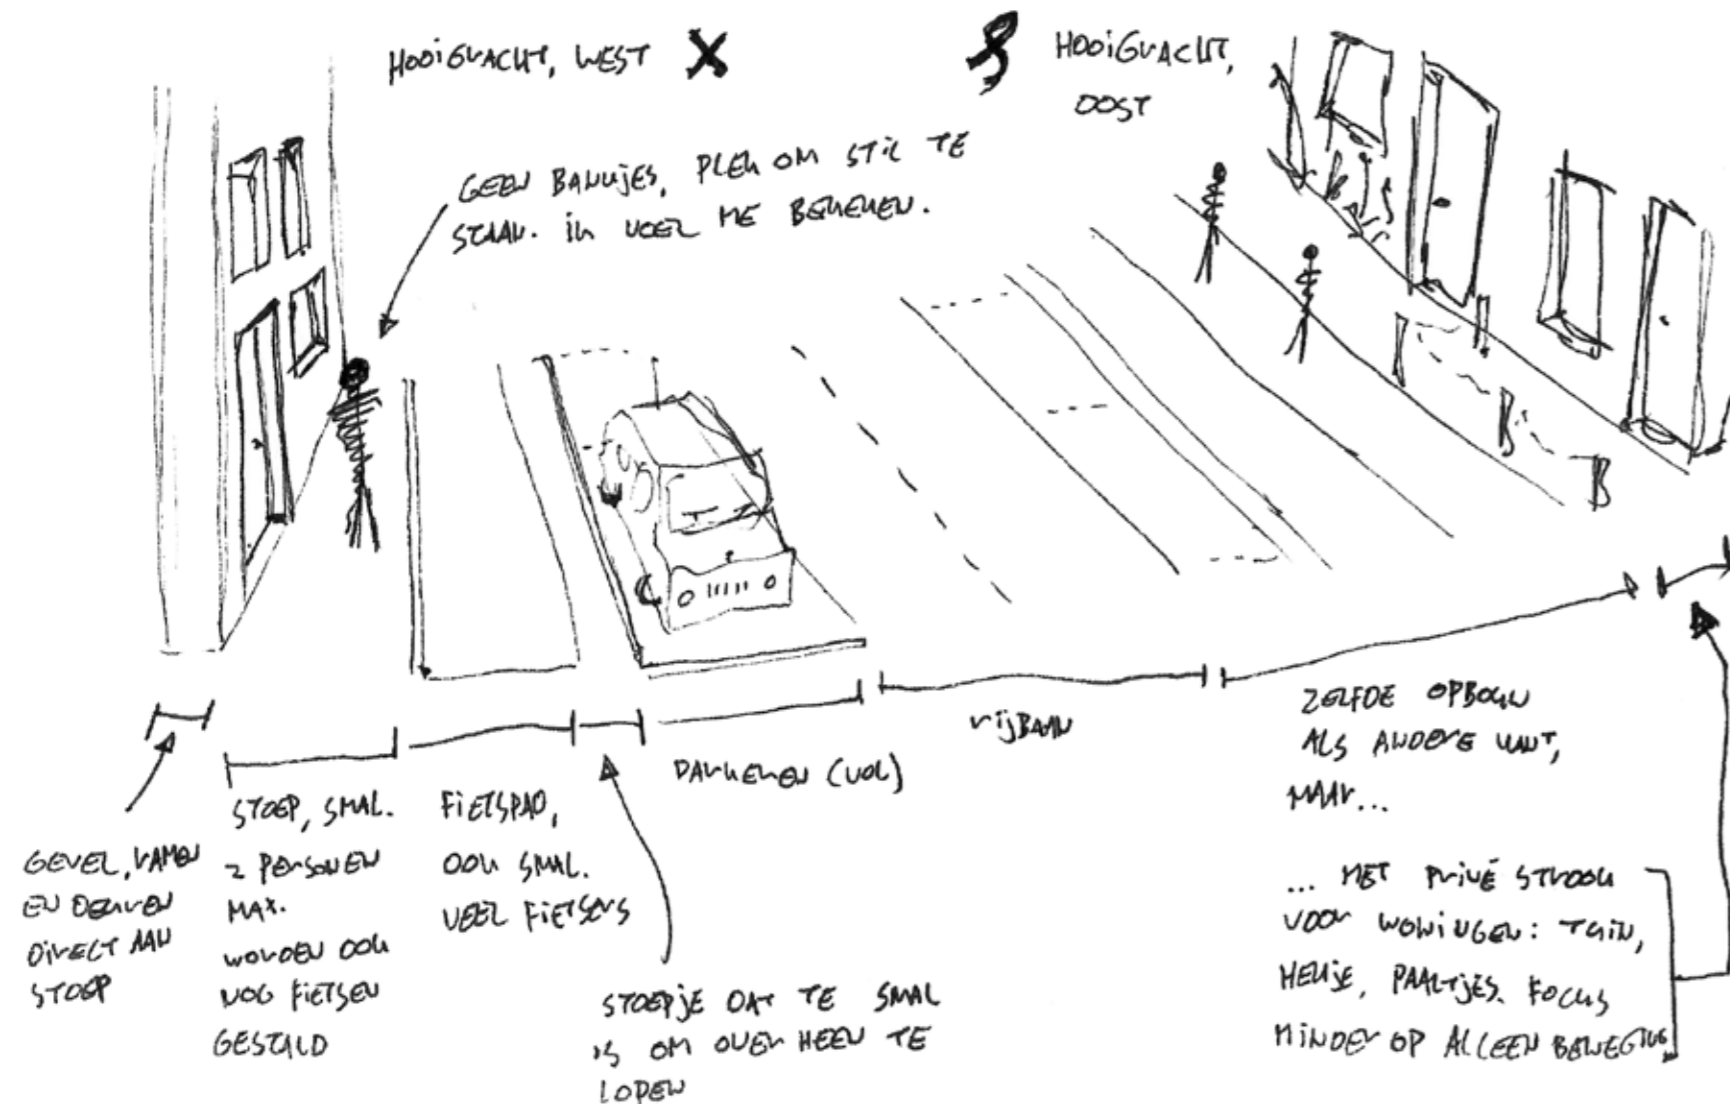 HOOIGRACHT, WEST X
HOOIGRACHT,
OOST
GEEN BANKJES, PLEK OM STIL TE
STAAN. IK VOEL ME BEKEKEN.
GEVEL, RAMEN
EN DEUREN
DIRECT AAN
STOEP
STOEP, SMAL.
2 PERSONEN
MAX.
WORDEN OOK
NOG FIETSEN
GESTALD
FIETSPAD,
OOK SMAL.
VEEL FIETSERS
STOEPJE DAT TE SMAL
IS OM OVER HEEN TE
LOPEN
PARKEREN (VOL)
RIJBAAN
ZELFDE OPBOUW
ALS ANDERE KANT,
MAAR...
... MET PRIVÉ STROOK
VOOR WONINGEN: TUIN,
HEKJE, PAALTJES. FOCUS
MINDER OP ALLEEN BEWEGING